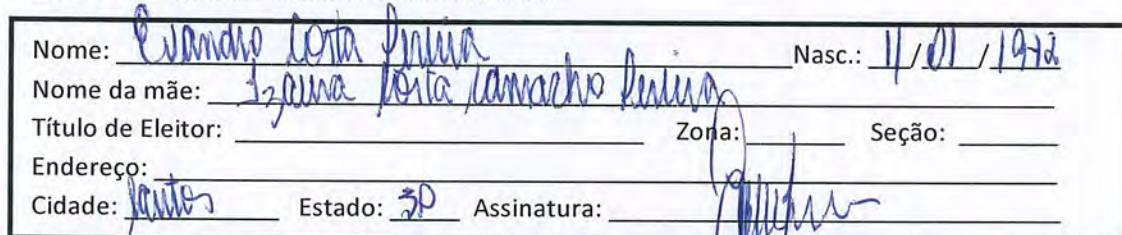 Nome: Evandro Costa Pereira Nasc.: 11/01/1972
Nome da mãe: Izaura Costa Camacho Pereira
Título de Eleitor: Zona: Seção:
Endereço:
Cidade: Santos Estado: SP Assinatura: